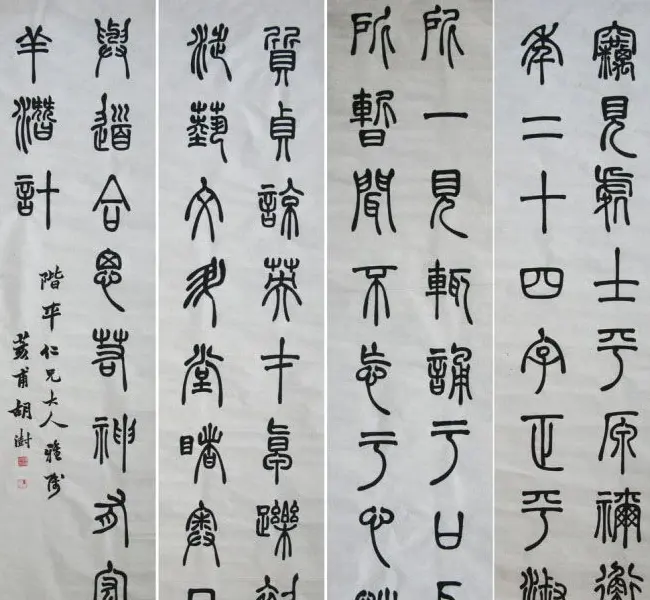 竊見處士平原禰衡
年二十四字正平淑
所一見輒誦于口
所暫聞不忘于心
質貞諒英才卓躒
涉藝文升堂睹奧
與道合思若神有宏
羊潛計
階平仁兄大人雅屬
荄甫胡澍